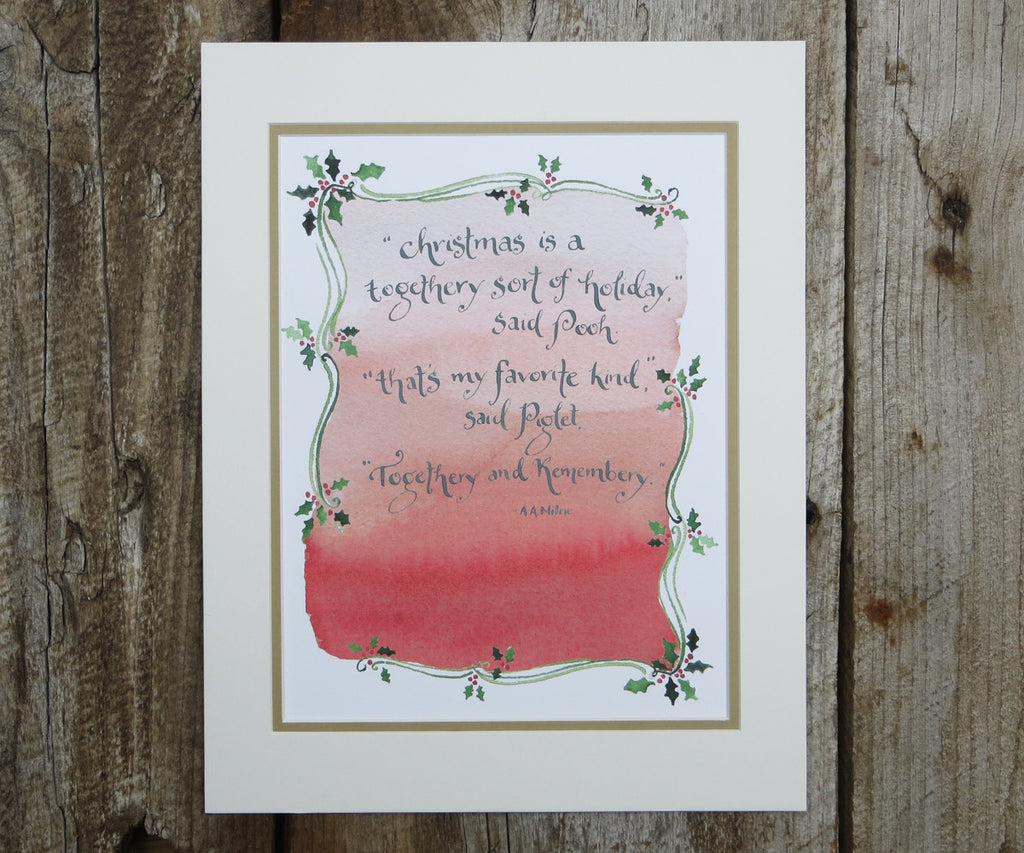 "Christmas is a
togethery sort of holiday,"
said Pooh.
"that's my favorite kind,"
said Piglet.
"Togethery and Remembery."
-A.A.Milne